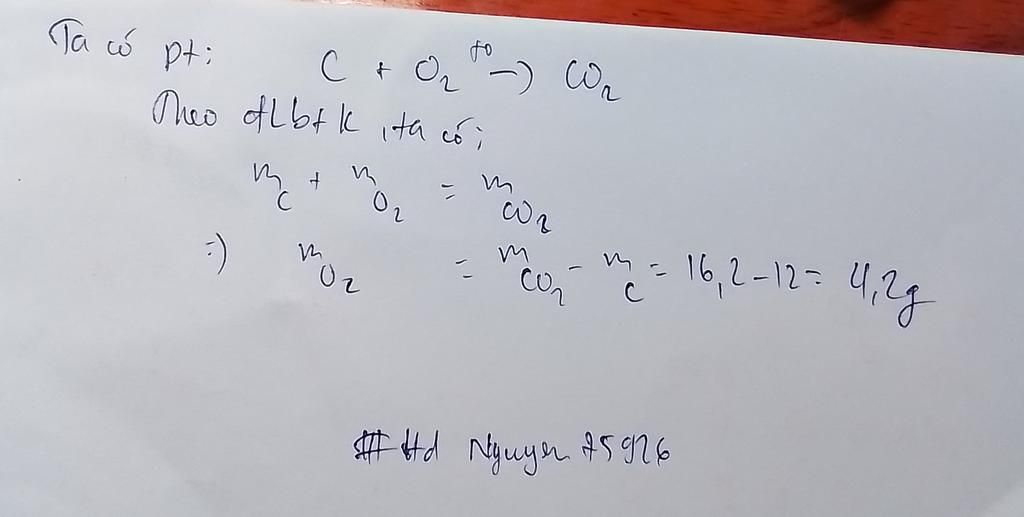 Ta có pt:   C + O₂ →(t⁰) CO₂
Theo đLbtk, ta có:
m_C + m_O₂ = m_CO₂
=) m_O₂ = m_CO₂ - m_C = 16,2-12= 4,2g
# Hd Nguyen 75926